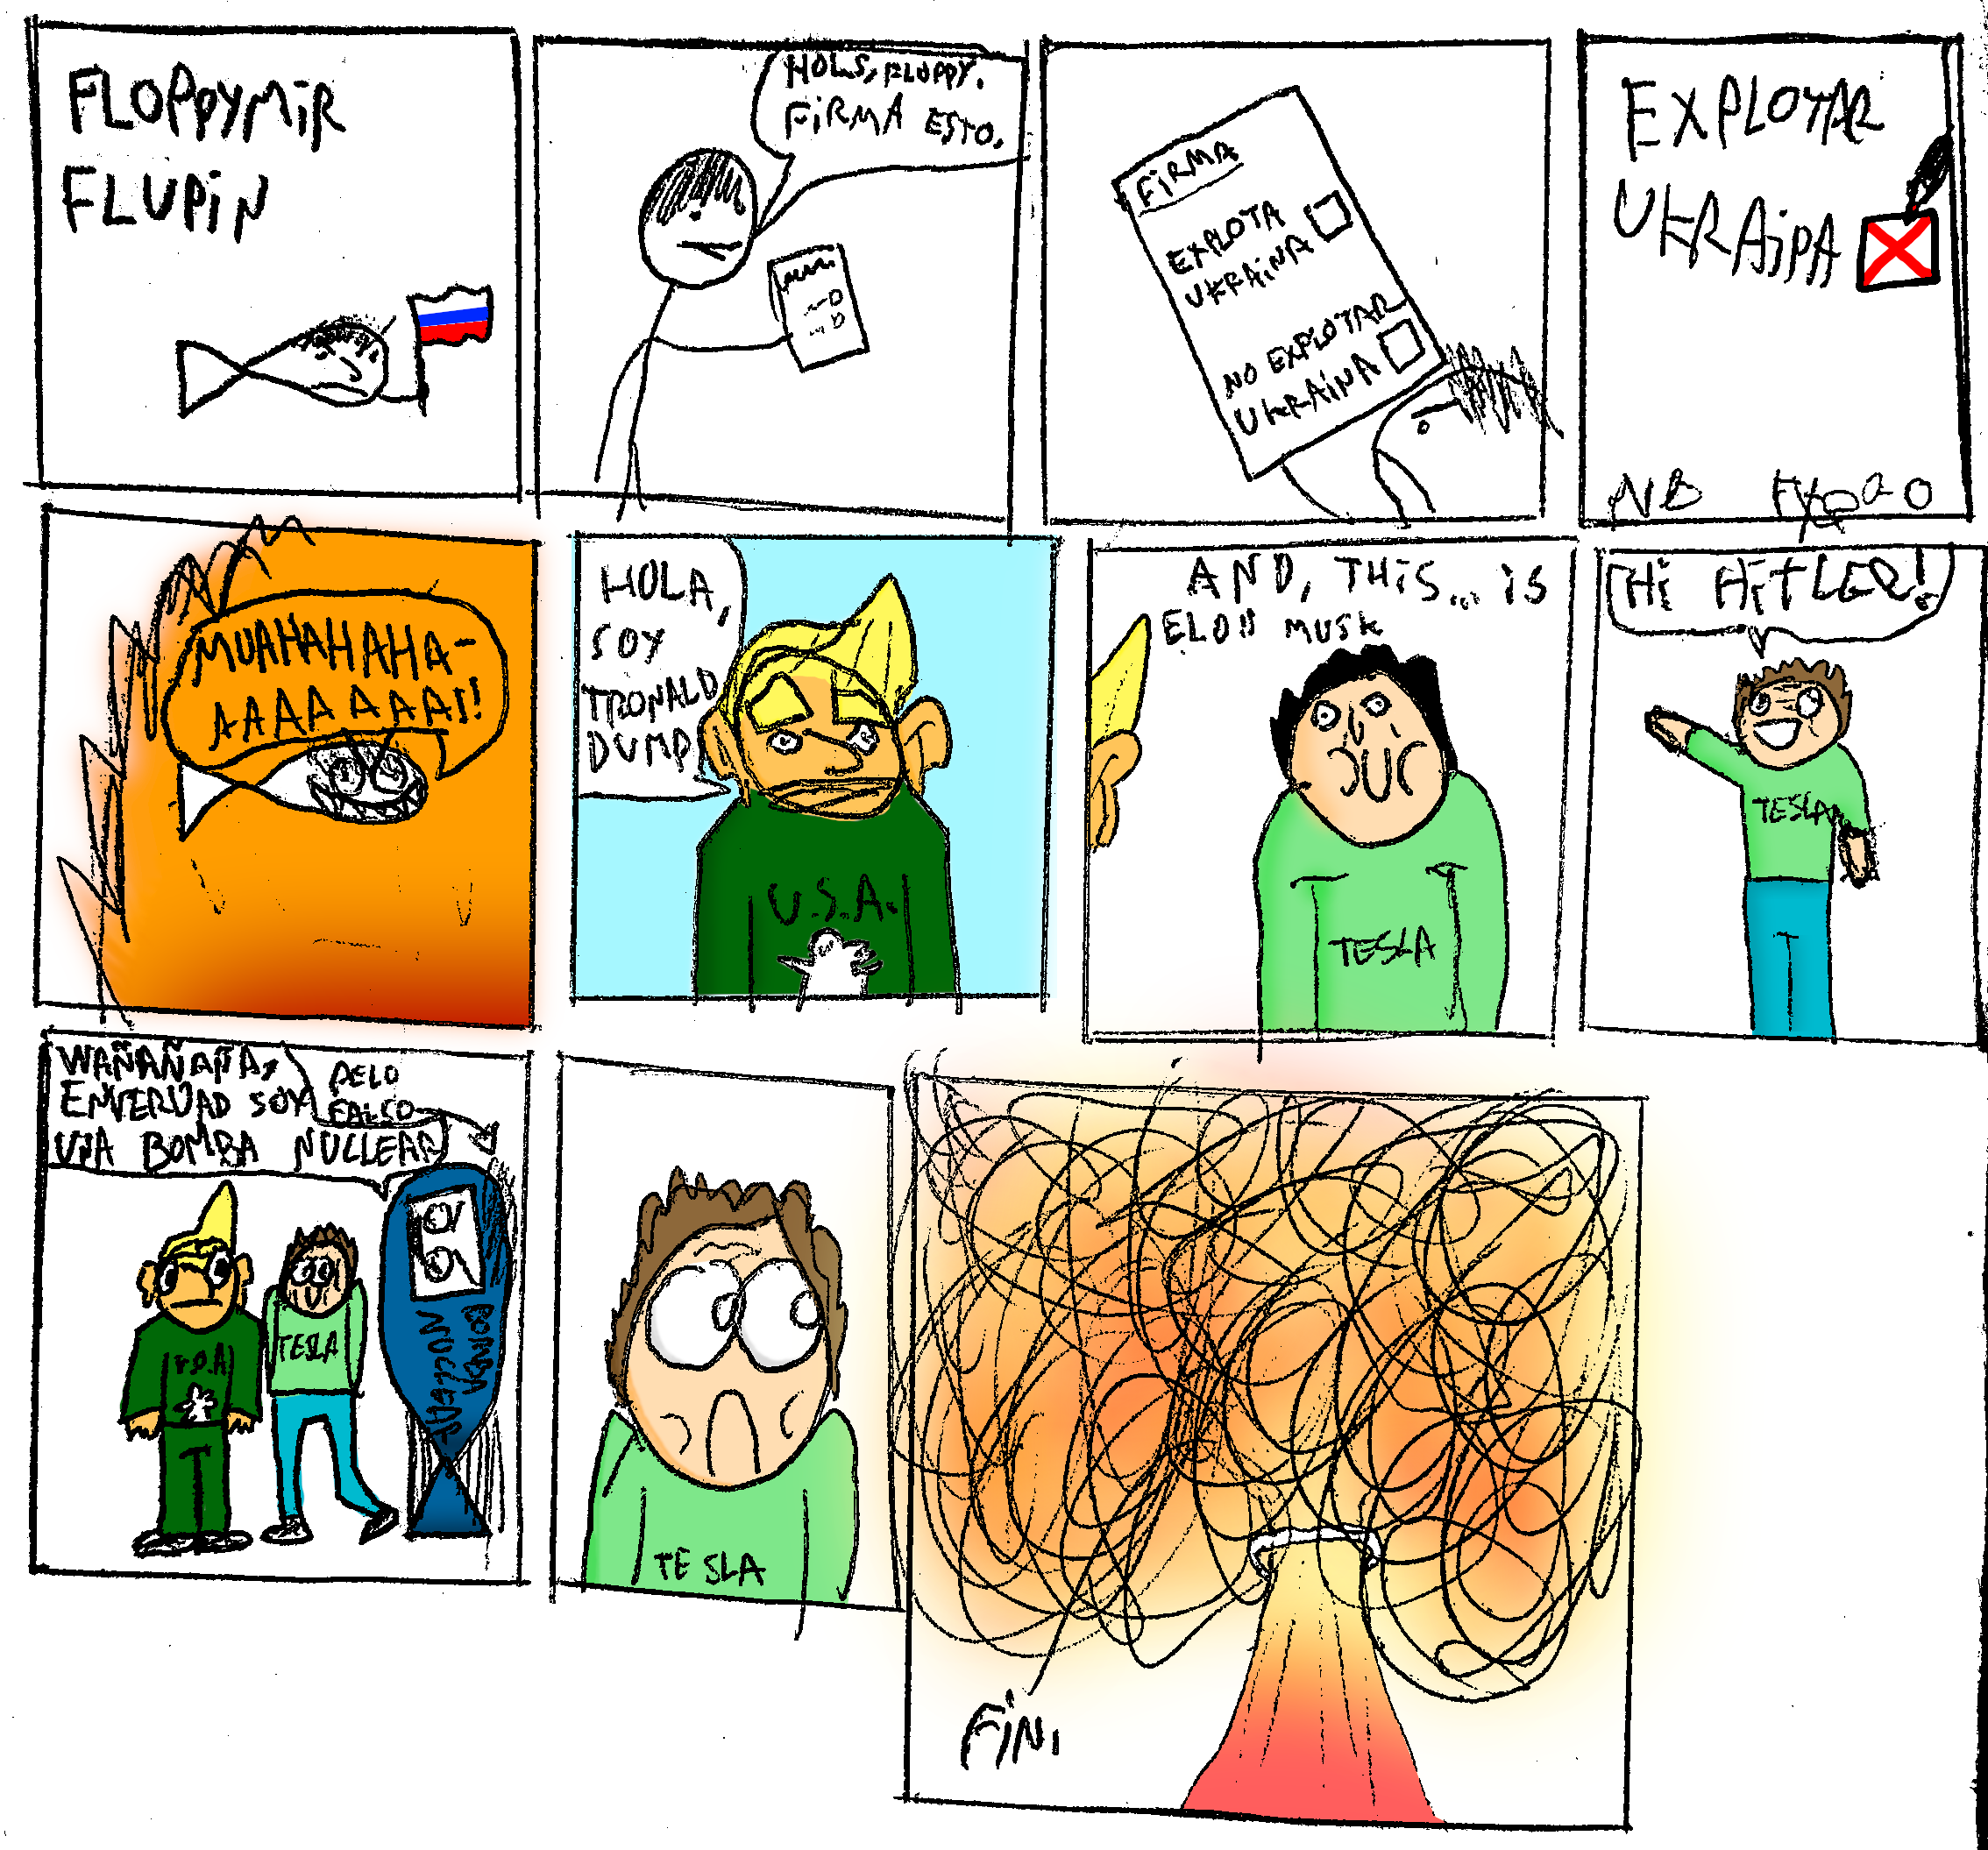 FLOPPYMIR
FLUPIN
HOLS, FLOPPY.
FIRMA ESTO.
FIRMA
EXPLOTA
UKRAINA
NO EXPLOTAR
UKRAINA
EXPLOTAR
UKRAIPA
MUAHAHAHA-
AAAAAAAI!
HOLA,
SOY
TRONALD
DUMP
U.S.A.
AND, THIS... IS
ELON MUSK
TESLA
HI HITLER!
TESLA
WAÑAÑAÑA,
ENVERDAD SOY
UNA BOMBA NUCLEAR
PELO
FALSO
TESLA
BOMBA
NUCLEAR
TESLA
FIN.